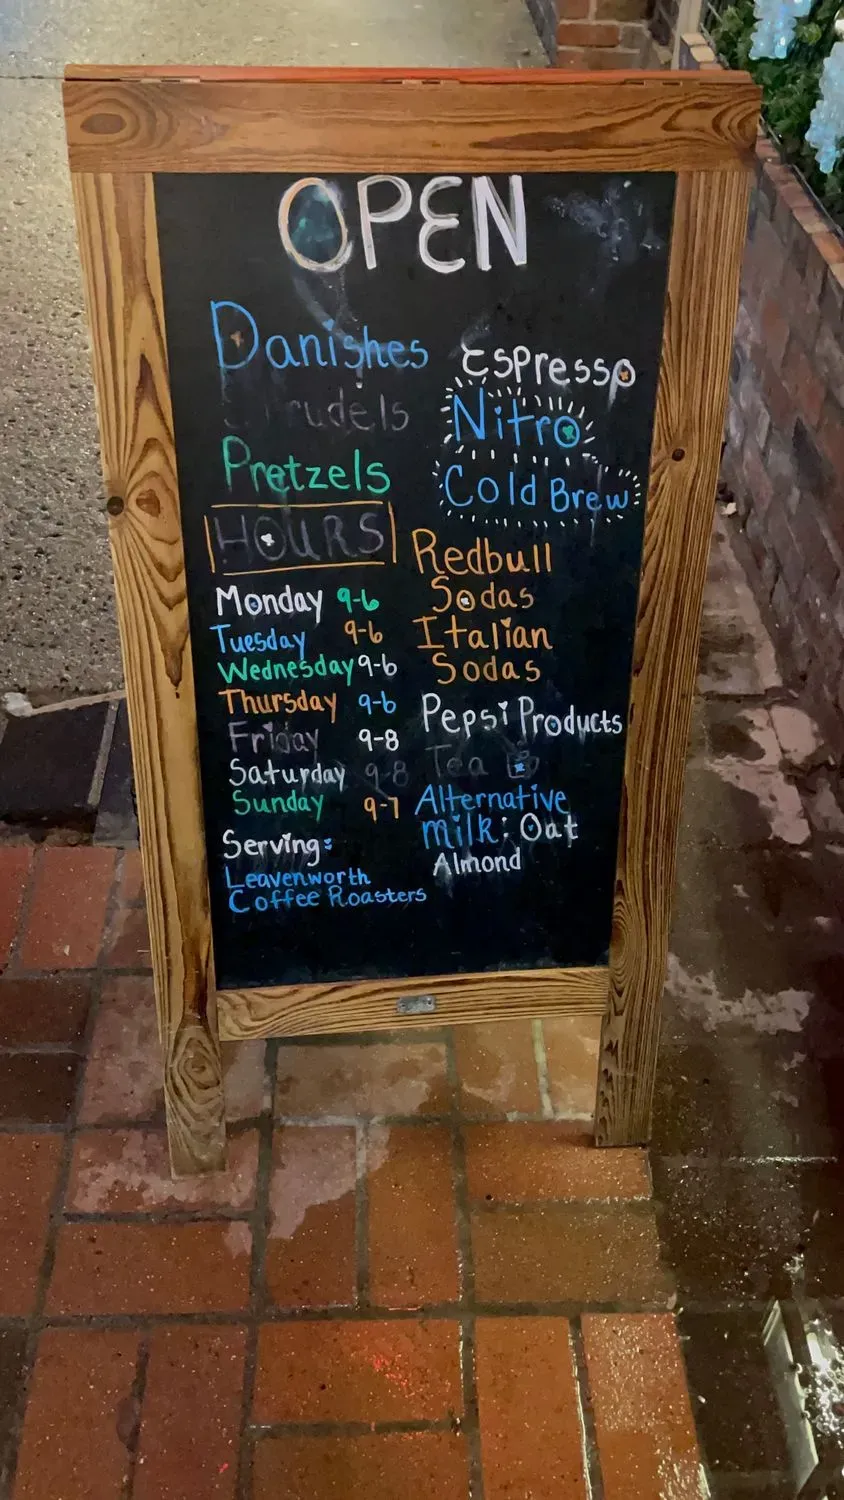 OPEN
Danishes
Strudels
Pretzels
HOURS
Monday 9-6
Tuesday 9-6
Wednesday 9-6
Thursday 9-6
Friday 9-8
Saturday 9-8
Sunday 9-7
Serving:
Leavenworth
Coffee Roasters
Espresso
Nitro
Cold Brew
Redbull
Sodas
Italian
Sodas
Pepsi Products
Tea
Alternative
milk: Oat
Almond